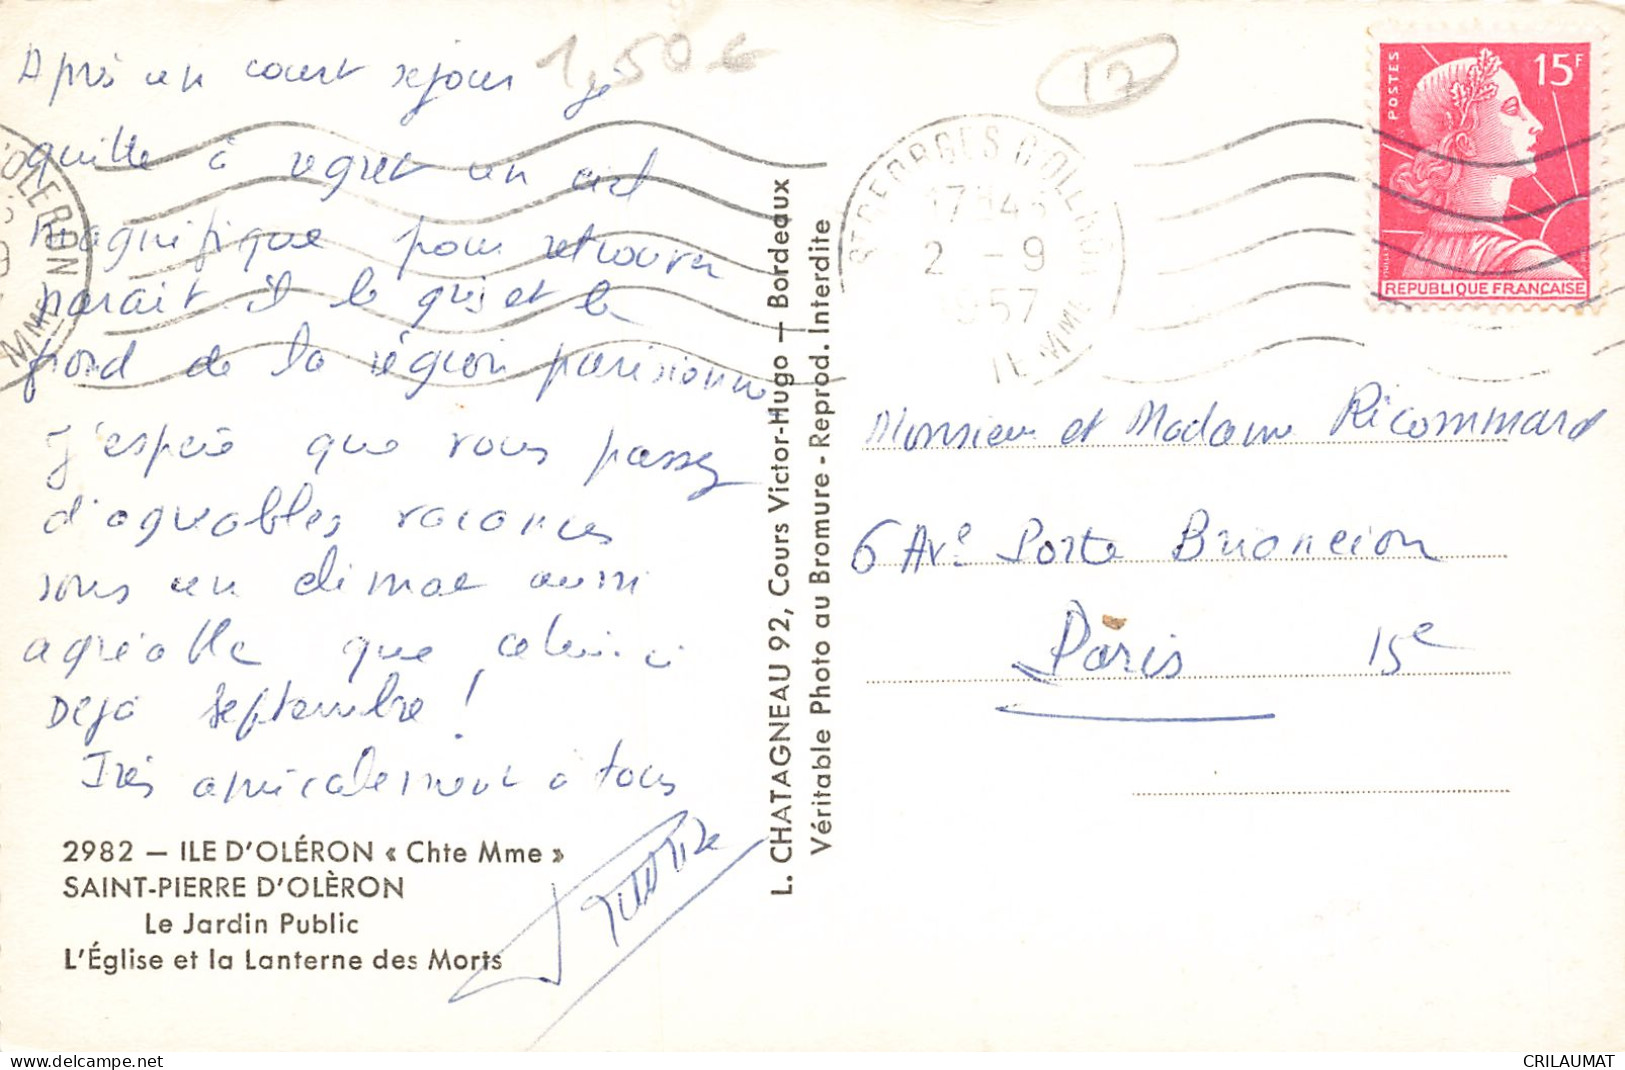 Après un court séjour je
quitte à regret un ciel
magnifique pour retrouver
parait il le gris et le
froid de la région parisienne
J'espère que vous passez
d'agréables vacances
sous un climat aussi
agréable que celui ci
Déjà septembre !
Très amicalement à tous
2982 — ILE D'OLÉRON « Chte Mme »
SAINT-PIERRE D'OLÈRON
Le Jardin Public
L'Église et la Lanterne des Morts
1,50 €
17
L. CHATAGNEAU 92, Cours Victor-Hugo — Bordeaux
Véritable Photo au Bromure - Reprod. Interdite
ST GEORGES D'OLERON
17H45
2 - 9
1957
POSTES
15F
REPUBLIQUE FRANÇAISE
Monsieur et Madame Ricommard
6 Ave Porte Brancion
Paris 15e
D'OLERON
MME
delcampe.net
CRILAUMAT